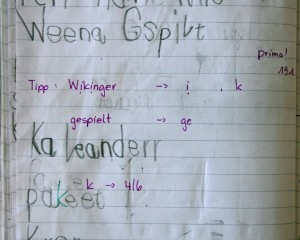 Weena Gspilt
prima!
19.1.
Tipp: Wikinger -> i , k
gespielt -> ge
Kaleanderr
k -> 4/6
pakeet